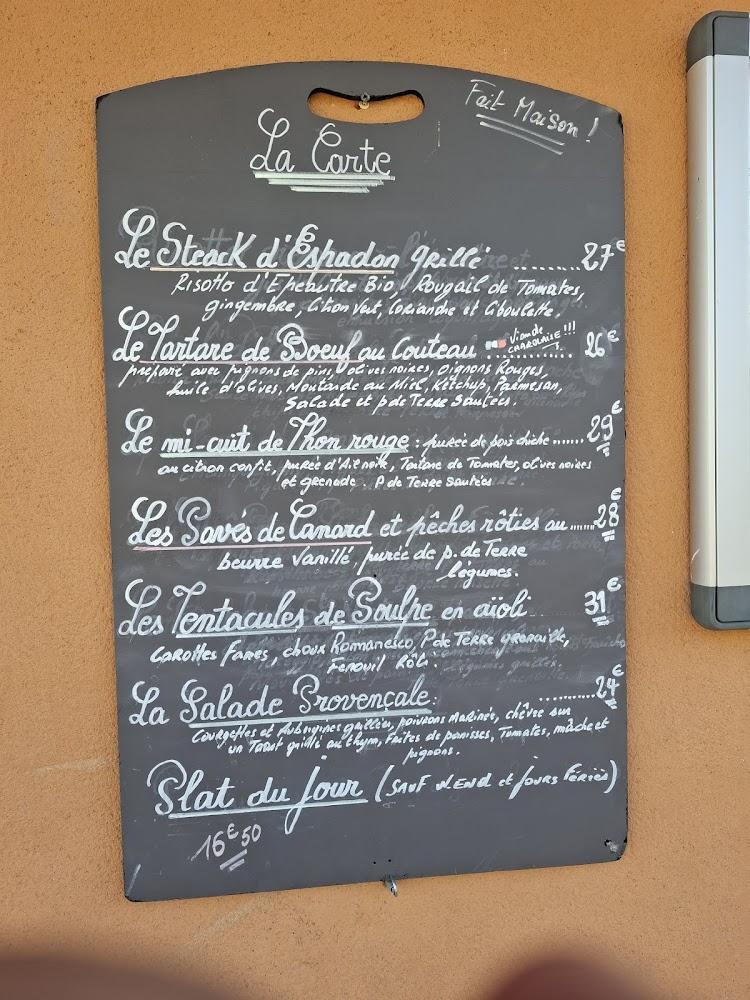 Fait Maison !
La Carte
Le Steack d'Espadon grillé ........ 27€
Risotto d'Epeautre Bio, Rougail de Tomates,
gingembre, Citron Vert, Coriandre et Ciboulette.
Le Tartare de Boeuf au Couteau Viande CHAROLAISE !!! ........ 26€
préparé avec pignons de pins, olives noires, oignons Rouges,
huile d'olives, Moutarde au Miel, Ketchup, Parmesan,
Salade et p de Terre Sautées.
Le mi-cuit de Thon rouge : purée de pois chiche ...... 29€
au citron confit, purée d'Ail noir, Tartare de Tomates, olives noires
et grenade. P de Terre Sautées
Les Pavés de Canard et pêches rôties au ...... 28€
beurre Vanillé, purée de p. de Terre
légumes.
Les Tentacules de Poulpe en aïoli 31€
Carottes Fanes, choux Romanesco, P de Terre grenaille,
Fenouil Rôti.
La Salade Provençale: ........ 24€
Courgettes et Aubergines grillées, poivrons Marinés, chèvre sur
un Toast grillé au thym, Frites de panisses, Tomates, mâche et
pignons.
Plat du jour (SAUF WEnd et jours Fériés)
16€50